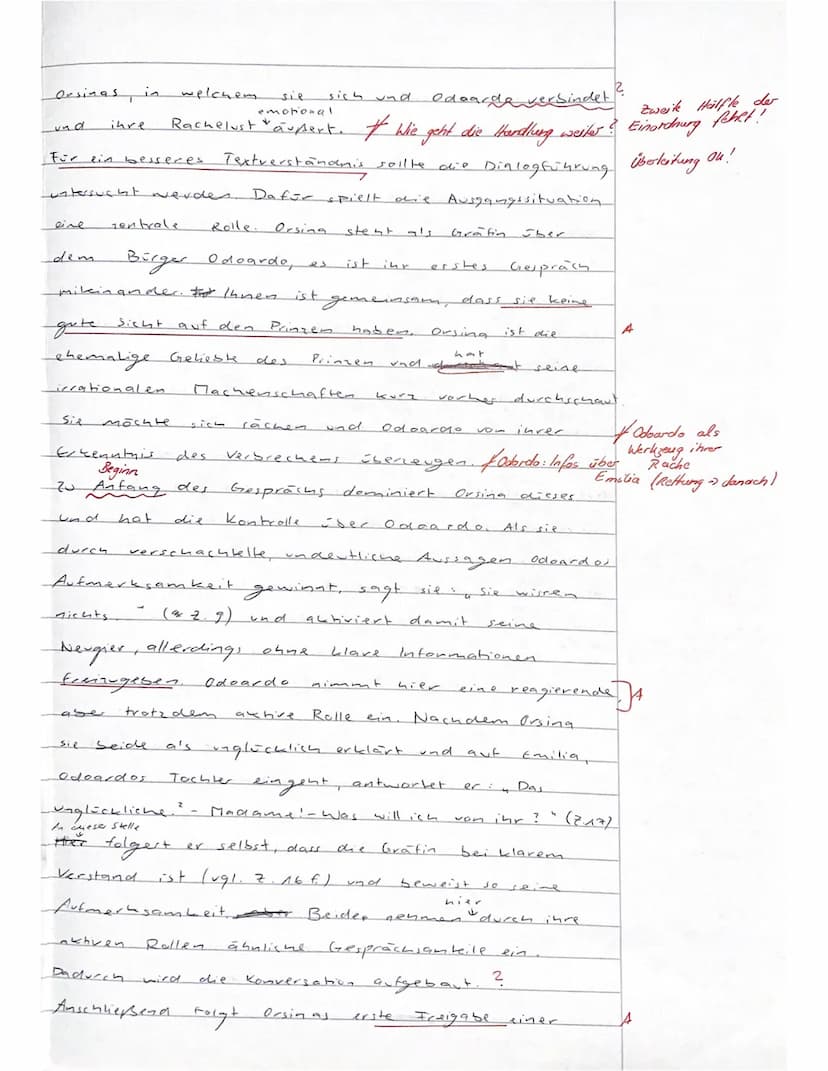 Orsinas, in welchem sie sich und Odoardo verbindet ?
Zweite Hälfte der
emotional
und ihre Rachelust äußert. Wie geht die Handlung weiter? Einordnung fehlt!
Für ein besseres Textverständnis sollte die Dialogführung Überleitung Ok!
untersucht werden. Dafür spielt die Ausgangssituation
eine zentrale Rolle. Orsina steht als Gräfin über
dem Bürger Odoardo, es ist ihr erstes Gespräch
miteinander. Ihnen ist gemeinsam, dass sie keine
gute Sicht auf den Prinzen haben. Orsina ist die A
ehemalige Geliebte des Prinzen und hat seine
irrationalen Machenschaften kurz vorher durchschaut.
Sie möchte sich rächen und Odoardo von ihrer Odoardo als
Werkzeug ihrer
Erkenntnis des Verbrechens überzeugen. Odoardo: Infos über Rache
Beginn Emilia (Rettung → danach)
Zu Anfang des Gesprächs dominiert Orsina dieses
und hat die Kontrolle über Odoardo. Als sie
durch verschachtelte, undeutliche Aussagen Odoardos
Aufmerksamkeit gewinnt, sagt sie: „Sie wissen
nichts." (Z. 9) und aktiviert damit seine
Neugier, allerdings ohne klare Informationen
freizugeben. Odoardo nimmt hier eine reagierende, A
aber trotzdem aktive Rolle ein. Nachdem Orsina
sie beide als unglücklich erklärt und auf Emilia,
Odoardos Tochter eingeht, antwortet er: „Das
unglückliche? - Madame! - Was will ich von ihr?" (Z 17)
In dieser Stelle
folgert er selbst, dass die Gräfin bei klarem
Verstand ist (vgl. Z. 16 f.) und beweist so seine
hier
Aufmerksamkeit. Beiden nehmen durch ihre
aktiven Rollen ähnliche Gesprächsanteile ein.
Dadurch wird die Konversation aufgebaut. ?
Anschließend folgt Orsinas erste Freigabe einer A